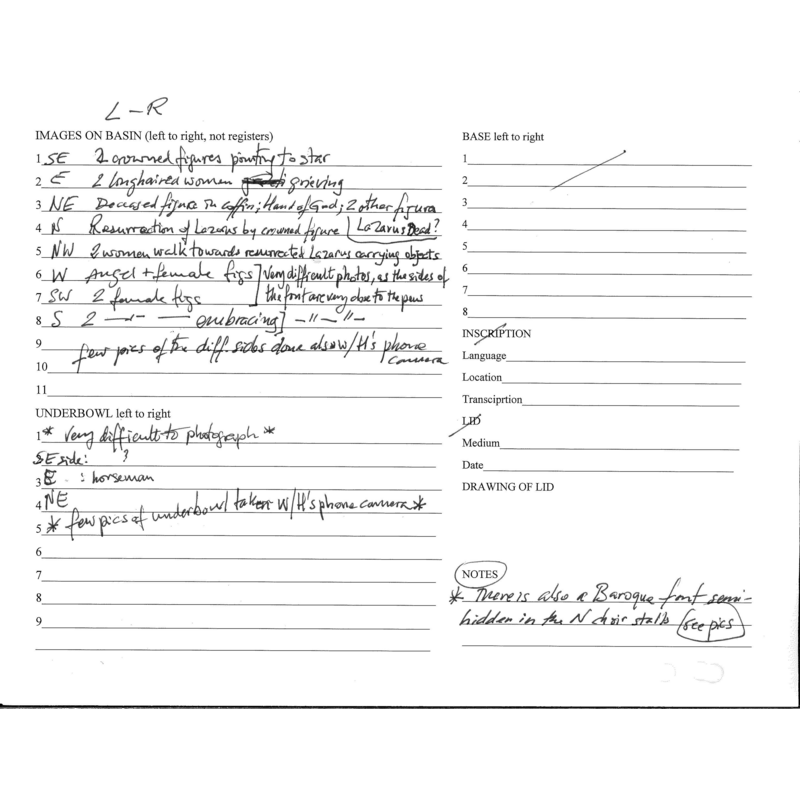 L - R
IMAGES ON BASIN (left to right, not registers)
1 SE 2 crowned figures pointing to star
2 E 2 longhaired women grieving
3 NE Deceased figure in coffin; Hand of God; 2 other figura
4 N Resurrection of Lazarus by crowned figure | Lazarus Dead?
5 NW 2 women walk towards resurrected Lazarus carrying objects
6 W Angel + female figs ] Very difficult photos, as the sides of
7 SW 2 female figs ] the font are very close to the pews
8 S 2 —"— — embracing] —"—"—
9 few pics of the diff sides done also w/H's phone
10 camera
11
UNDERBOWL left to right
1 * Very difficult to photograph *
SE side: ?
3 E : horseman
4 NE
5 * few pics of underbowl taken w/H's phone camera *
6
7
8
9
BASE left to right
1
2
3
4
5
6
7
8
INSCRIPTION
Language
Location
Transciprtion
LID
Medium
Date
DRAWING OF LID
NOTES
* There is also a Baroque font semi-
hidden in the N choir stalls (see pics)